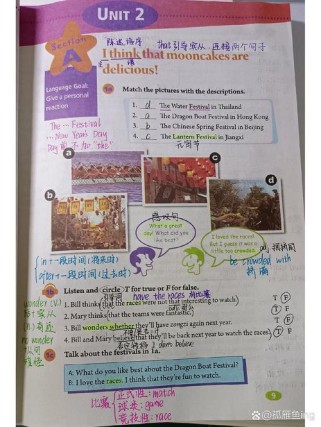 UNIT 2
陈述语序 that引导宾从，连接两个句子
Section A
I think that mooncakes are
delicious!
Language Goal:
Give a personal
reaction
1a Match the pictures with the descriptions.
1. d The Water Festival in Thailand
2. a The Dragon Boat Festival in Hong Kong
3. b The Chinese Spring Festival in Beijing
4. c The Lantern Festival in Jiangxi
元宵节
The … Festival
… New Year's Day
Day前不加"the"
a
c
d
b
感叹句
What a great
day! What did you
like best?
I loved the races!
But I guess it was a
little too crowded.
拥挤的
be crowded with
挤满
in+一段时间(将来时)
after+一段时间(过去时)
1b Listen and circle T for true or F for false.
have the races
1. Bill thinks that the races were not that interesting to watch. T F
2. Mary thinks that the teams were fantastic. T F
3. Bill wonders whether they'll have zongzi again next year. T F
4. Bill and Mary believe that they'll be back next year to watch the races. T F
wonder (v.)
(n.)奇迹
no wonder
难怪
1c Talk about the festivals in 1a.
A: What do you like best about the Dragon Boat Festival?
B: I love the races. I think that they're fun to watch.
比赛
正式性: match
球类: game
竞技性: race
9
@孤雁鱼ing